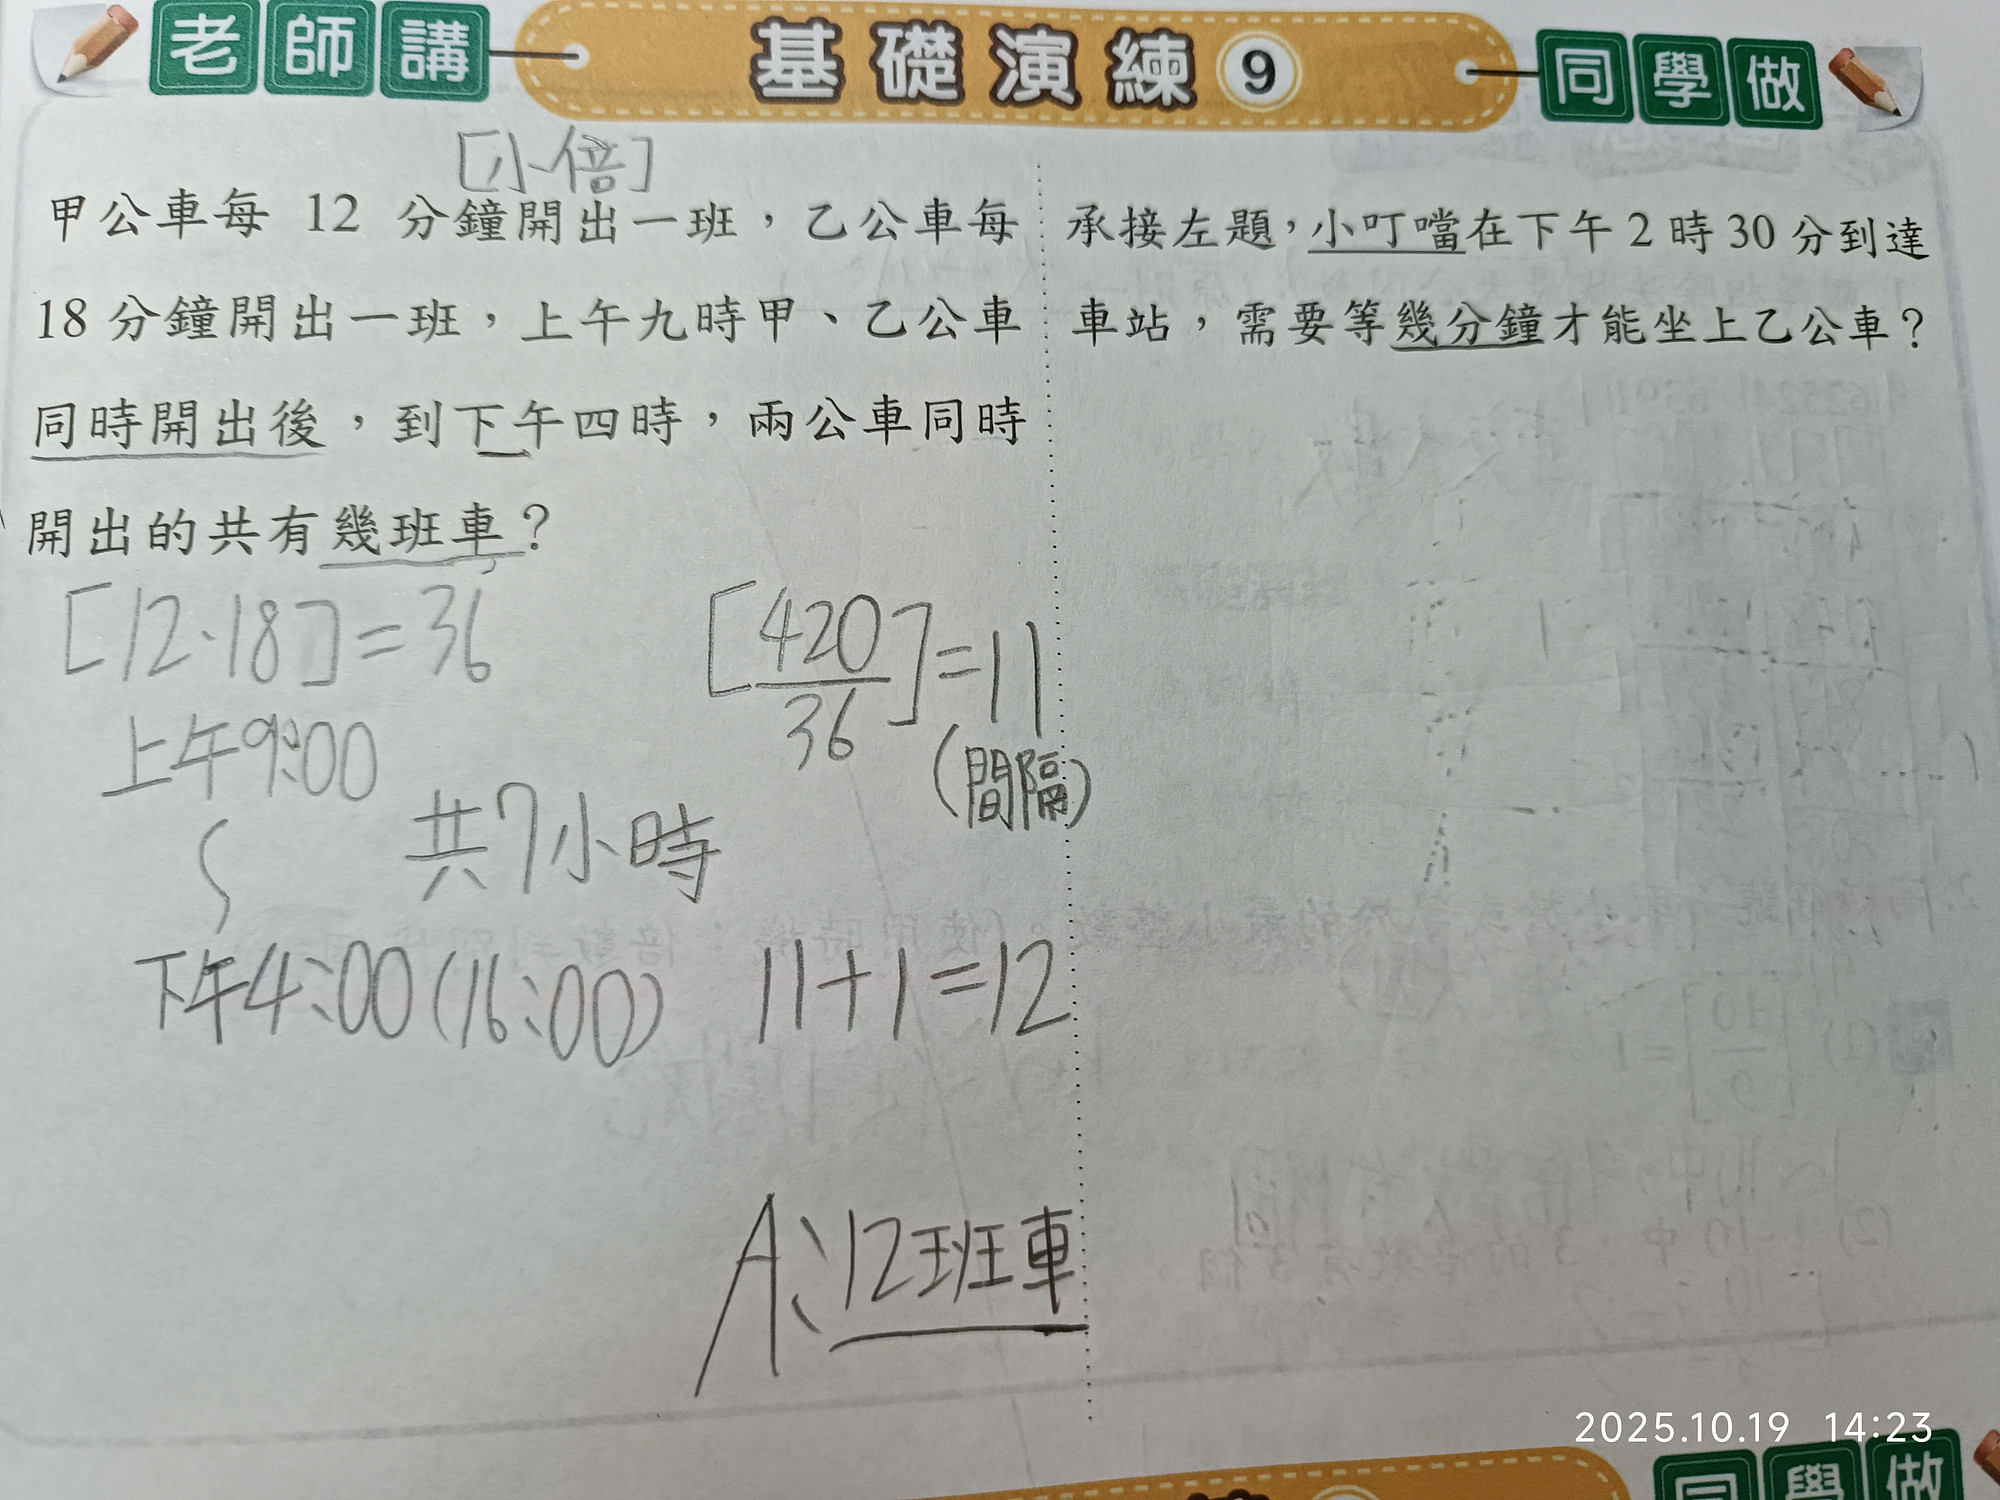 老師講 基礎演練9 同學做
[小倍]
甲公車每 12 分鐘開出一班，乙公車每
18 分鐘開出一班，上午九時甲、乙公車
同時開出後，到下午四時，兩公車同時
開出的共有幾班車？
[12、18] = 36
上午9:00
共7小時
下午4:00(16:00)
[420/36] = 11
(間隔)
11+1=12
A:12班車
承接左題，小叮噹在下午2時30分到達
車站，需要等幾分鐘才能坐上乙公車？
2025.10.19 14:23
同學做